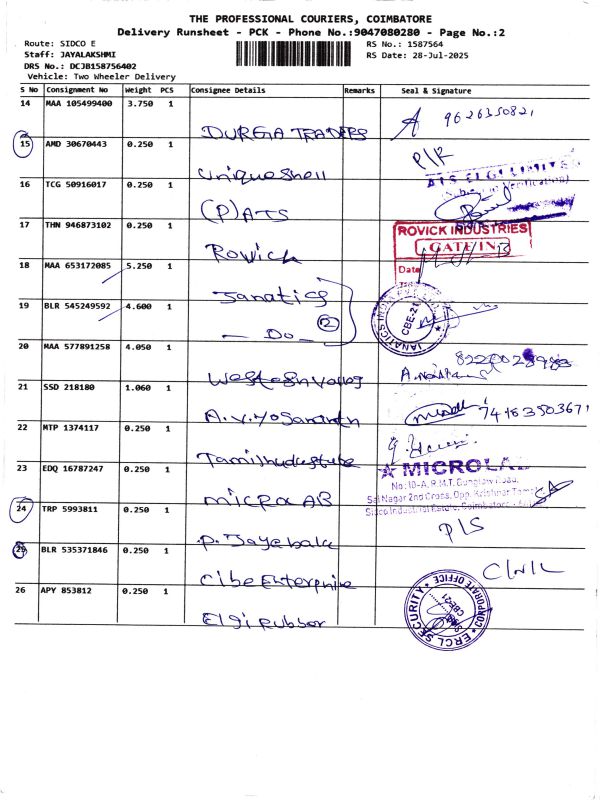 THE PROFESSIONAL COURIERS, COIMBATORE
Delivery Runsheet - PCK - Phone No.:9047080280 - Page No.:2
Route: SIDCO E
RS No.: 1587564
Staff: JAYALAKSHMI
RS Date: 28-Jul-2025
DRS No.: DCJB158756402
Vehicle: Two Wheeler Delivery
S No Consignment No Weight PCS Consignee Details Remarks Seal & Signature
14 MAA 105499400 3.750 1
DURGA TRADERS 9626350821
15 AMD 30670443 0.250 1
Unique Shell P/R
16 TCG 50916017 0.250 1
ATS ELGI LIMITED
(P) ATS
17 THN 946873102 0.250 1
ROVICK INDUSTRIES
GATE IN
Rovick
Date
18 MAA 653172085 5.250 1
Janatics
19 BLR 545249592 4.600 1
JANATICS INDIA
CBE-21
- Do - 2
20 MAA 577891258 4.050 1
21 SSD 218180 1.060 1
74183503671
22 MTP 1374117 0.250 1
23 EDQ 16787247 0.250 1
MICROLAB
No:10-A, R.M.T. Bunglow Road,
Sai Nagar 2nd Cross, Opp. Krishna
Sidco Industrial Estate, Coimbatore
micro AB
24 TRP 5993811 0.250 1
P/S
P. Jayabala
25 BLR 535371846 0.250 1
C/N/L
Cibe Enterprise
26 APY 853812 0.250 1
ERCL SECURITY
CORPORATE OFFICE
CBE-21
Elgi Rubber